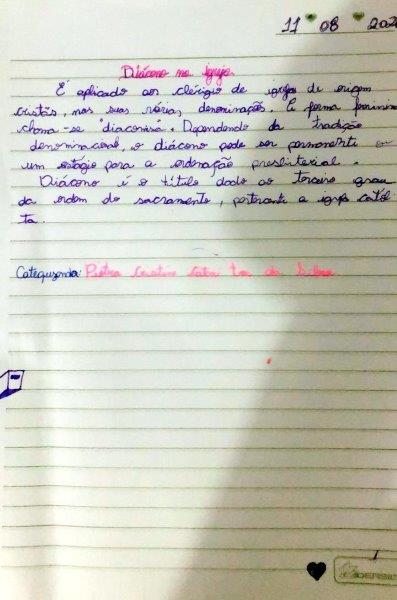 11 08 202
Diácono na igreja.
É aplicado aos clérigo de igreja de origem
cristãs, nas suas várias denominações. E forma feminina
chama-se "diaconisa". Dependendo da tradição
denominacional, o diácono pode ser permanente ou
um estágio para a ordenação presbiterial.
Diácono é o título dado ao terceiro grau
da ordem do sacramento, pertencente a igreja catól
ta.
Catequizanda: Pietra da Silva
1